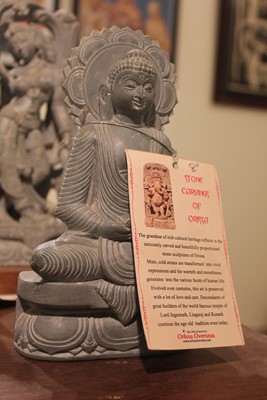 STONE
CARVINGS
OF
ORISSA
The grandeur of rich cultural heritage reflects in the
intricately carved and beautifully proportioned
stone sculptures of Orissa.
Mute, cold stones are transformed into vivid
expressions and the warmth and smoothness
generates into the various facets of human life.
Evolved over centuries, this art is preserved
with a lot of love and care. Descendants of
great builders of the world famous temple of
Lord Jagannath, Lingaraj and Konark
continue the age old tradition even today.
Orissa Overseas